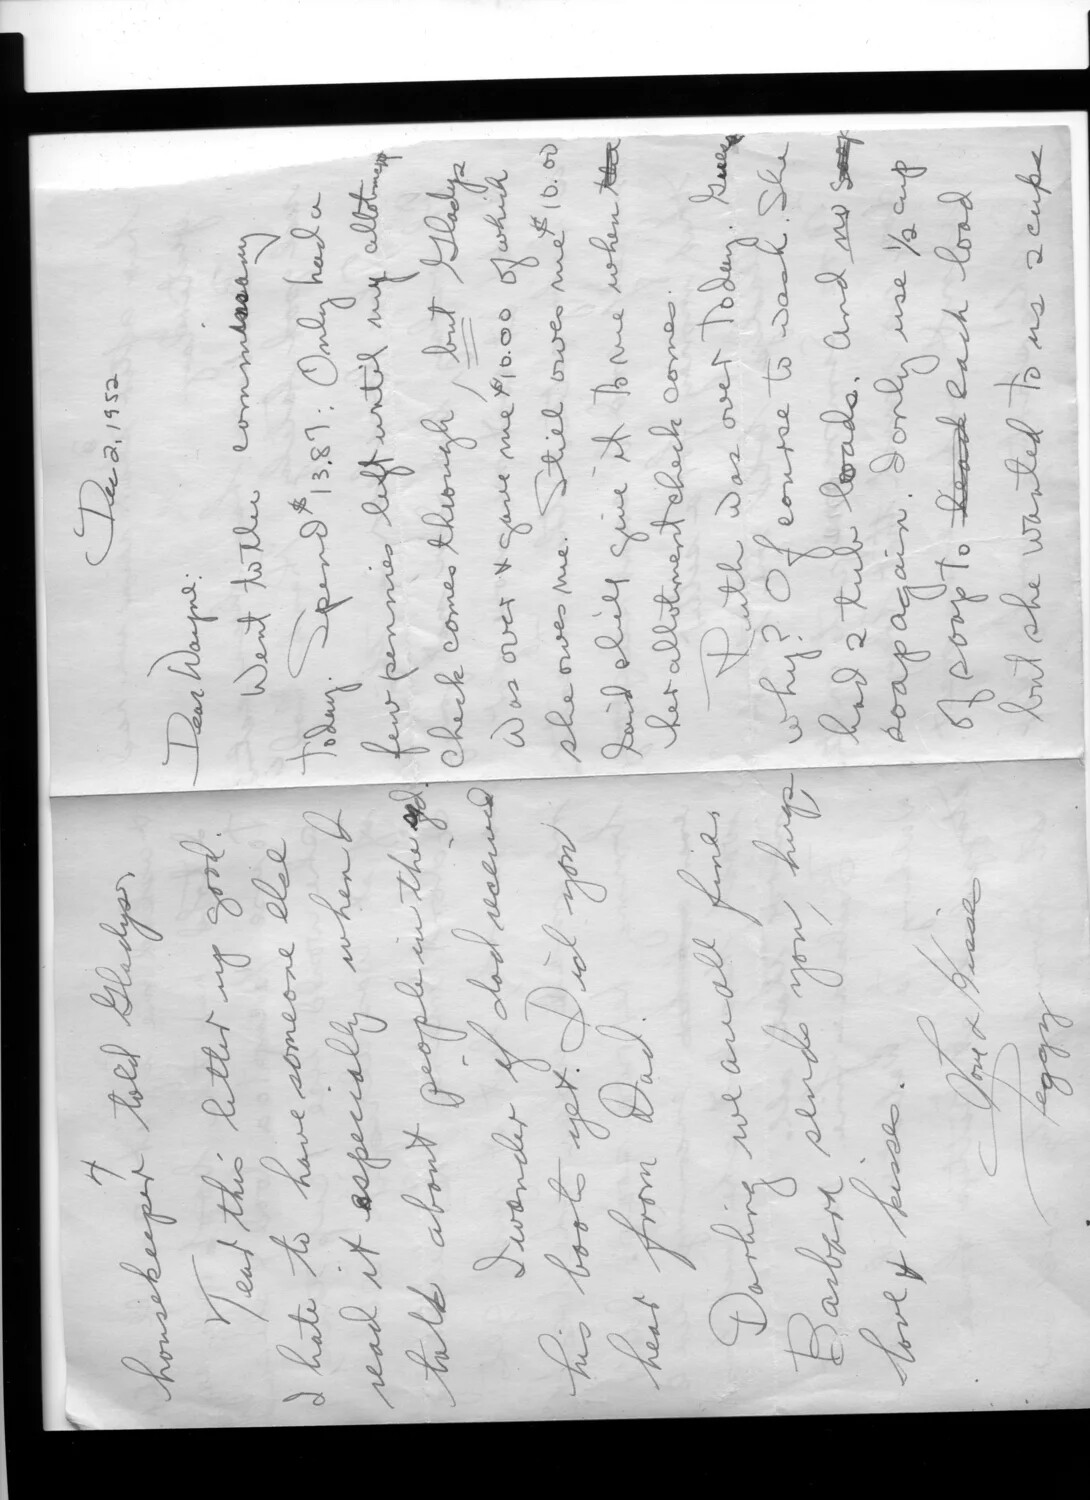 Dec 2, 1952
Dear Wayne:
Went to the commissary
today. Spend $13.87: Only had a
few pennies left until my allotment
check comes through, but Gladys
was over & gave me $10.00 of which
she owes me. Still owes me $10.00
said she'll give it to me when the
her allotment check comes.
Ruth was over today. Guess
why? Of course to wash. She
had 2 tub loads. And no soap
soap again. I only use 1/2 cup
of soap to each load
but she wanted to us 2 cups
4
housekeeper told Gladys,
Tear this letter up good.
I hate to have someone else
read it especially when I
talk about people in the qd.
I wonder if dad received
his boots yet. Did you
hear from Dad.
Darling we are all fine,
Barbara sends you, hugs
love & kisses.
Love & Kisses
Peggy